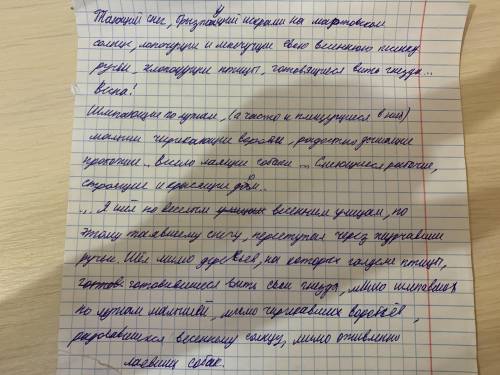 Тающий снег, брызгающий искрами на мартовском
солнце, лопочущие и мяучущие свою весеннюю песенку
ручьи, хлопочущие птицы, готовящиеся вить гнезда...
Весна!
Шлепающие по лужам, (а часто и плещущиеся в них)
мальчи чирикающие воробьи, радостно
прохожие.. Весело лающие собаки... Смеющиеся рабочие,
строящие и красящие дом..
... Я шёл по весёлым весенним улицам, по
этому таявшему снегу, переступая через журчавшие
ручьи. Шёл мимо деревьев, на которых галдели птицы,
готовившиеся вить свои гнёзда, мимо шлепавших
по лужам малышей, мимо чирикавших воробьёв,
радовавшихся весеннему солнцу, мимо оживленно
лаявших собак.